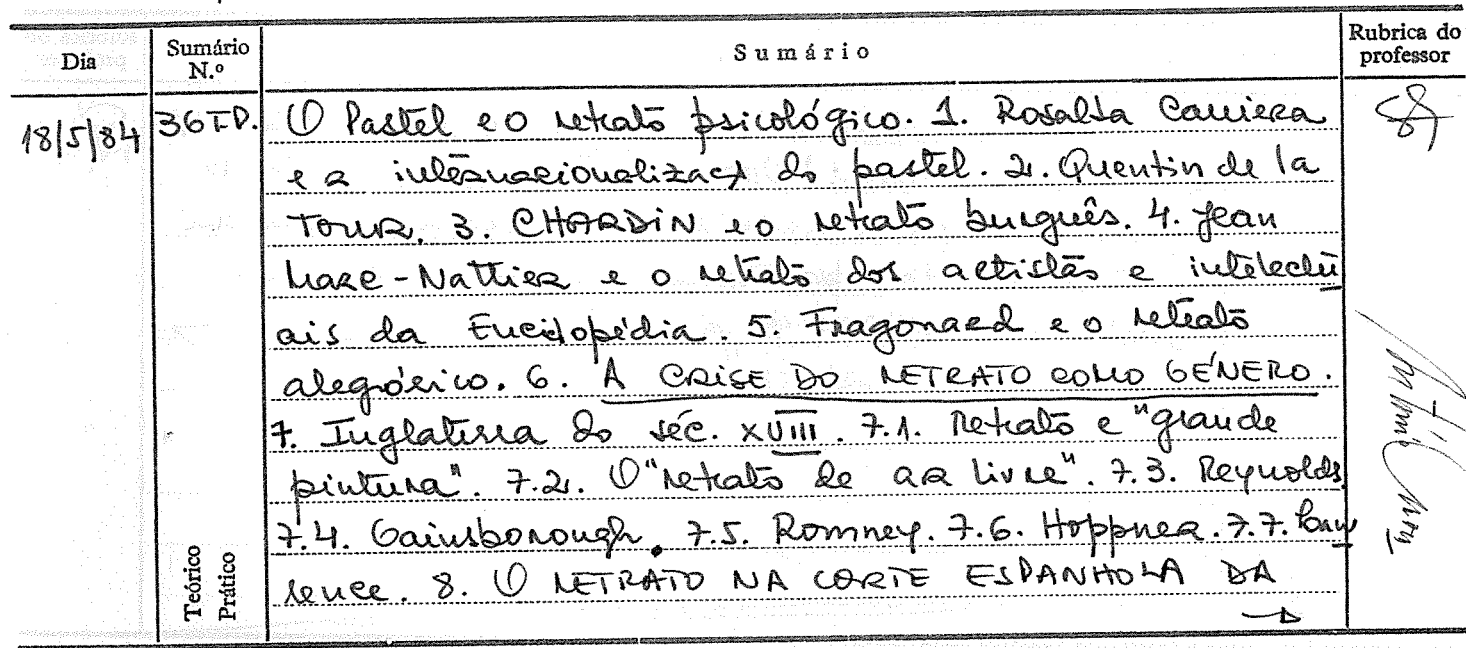 Dia
Sumário N.º
Sumário
Rubrica do professor
18/5/84
36TP.
O Pastel e o retrato psicológico. 1. Rosalba Carriera
e a internacionalizaç. do pastel. 2. Quentin de la
Tour. 3. CHARDIN e o retrato burguês. 4. Jean
Marc-Nattier e o retrato dos artistas e intelectu
ais da Enciclopédia. 5. Fragonard e o retrato
alegórico. 6. A CRISE DO RETRATO COMO GÉNERO.
7. Inglaterra do séc. XVIII. 7.1. Retrato e "grande
pintura". 7.2. O "retrato de ar livre". 7.3. Reynolds
7.4. Gainsborough. 7.5. Romney. 7.6. Hoppner. 7.7. Law
rence. 8. O RETRATO NA CORTE ESPANHOLA DA
Teórico
Prático